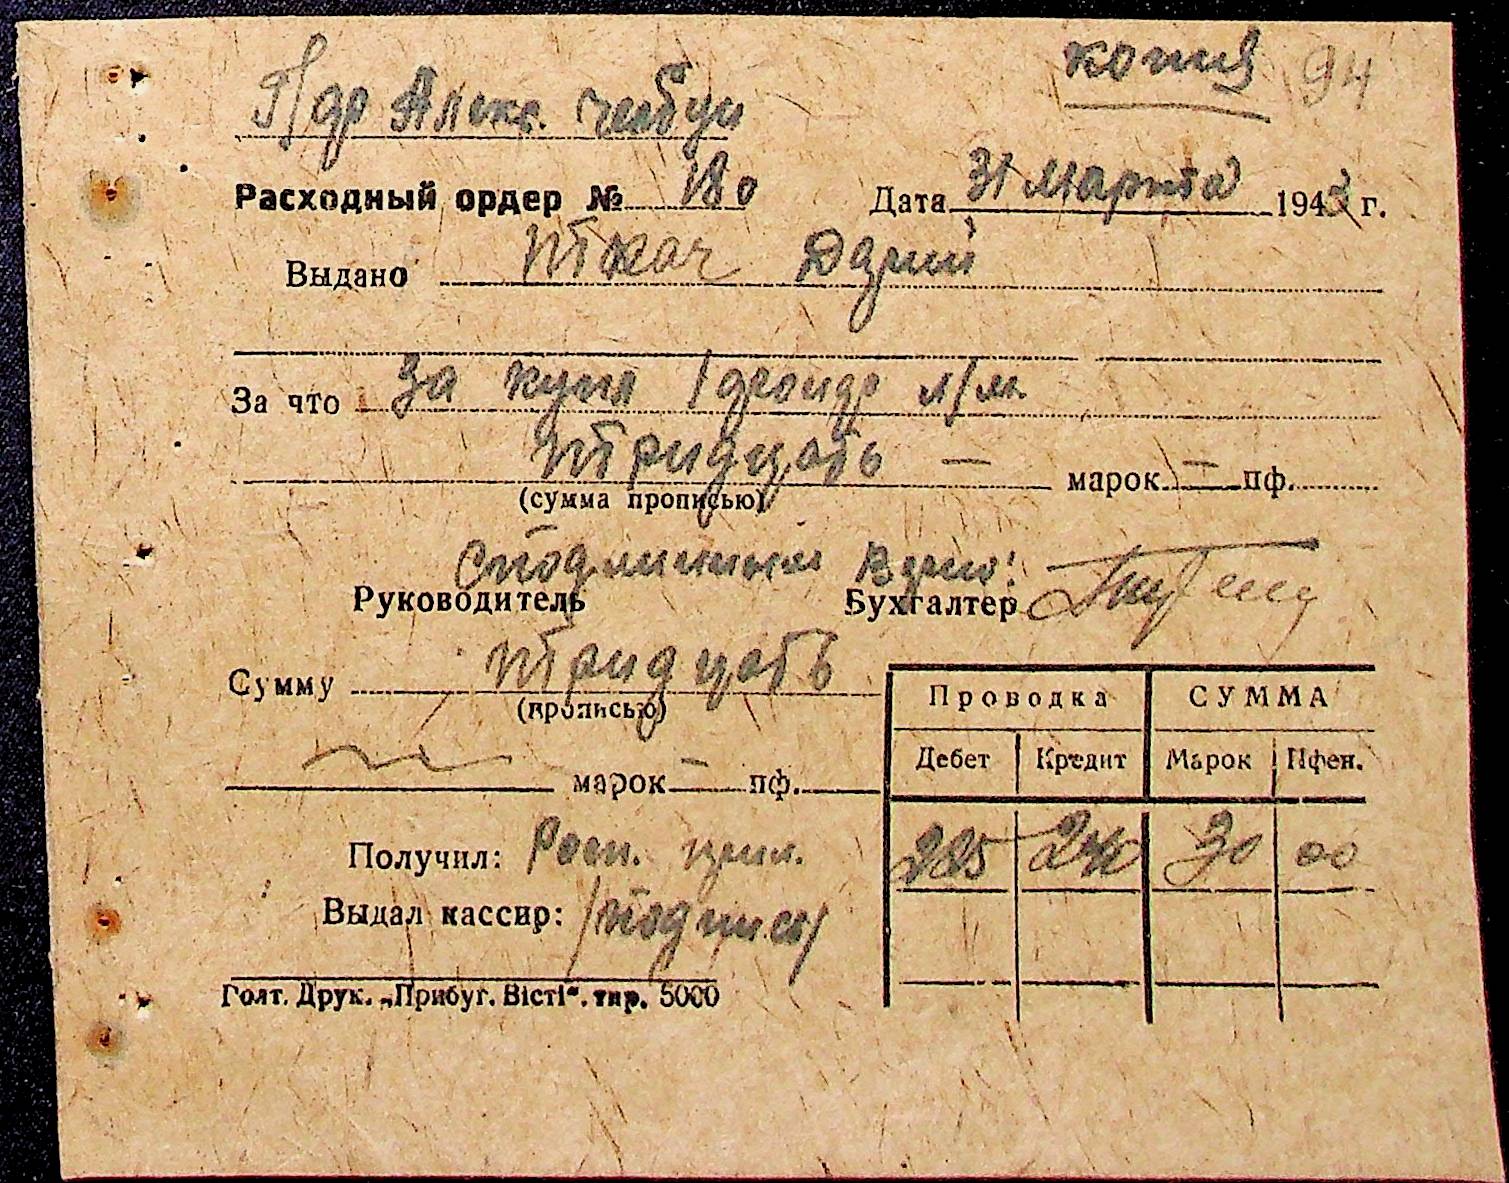 копия 94
Расходный ордер № 180 Дата 31 Марта 1943 г.
Выдано Ткач Дарии
За что За
Тридцать — марок — пф.
(сумма прописью)
С подлинным верно!
Руководитель Бухгалтер
Сумму Тридцать
(прописью)
марок — пф.
Проводка СУММА
Дебет Кредит Марок Пфен.
225 240 30 00
Получил:
Выдал кассир: /подпись/
Голт. Друк. „Прибуг. Вісті“. тир. 5000